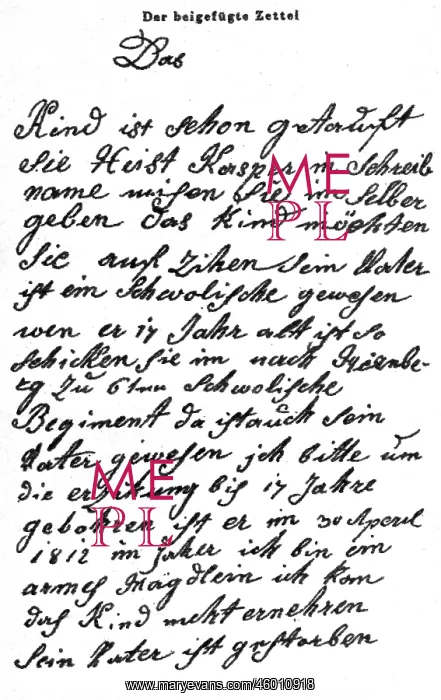 Der beigefügte Zettel
Das
Kind ist schon getauft
Sie Heist Kasper in Schreib
name misen Sie im Selber
geben das Kind möchten
Sie auf Zihen Sein Vater
ist ein Schwolische gewesen
wen er 17 Jahr alt ist so
schicken Sie im nach Nirnbe-
rg Zu 6ten Schwolische
Begiment da ist auch sein
Vater gewesen ich bitte um
die erzikung bis 17 Jahre
gebohren ist er im 30 Aperil
1812 im Jaher ich bin ein
armes Mägdlein ich kan
das Kind nicht ernehren
Sein Vater ist gestorben
ME
PL
ME
PL
www.maryevans.com/46010918